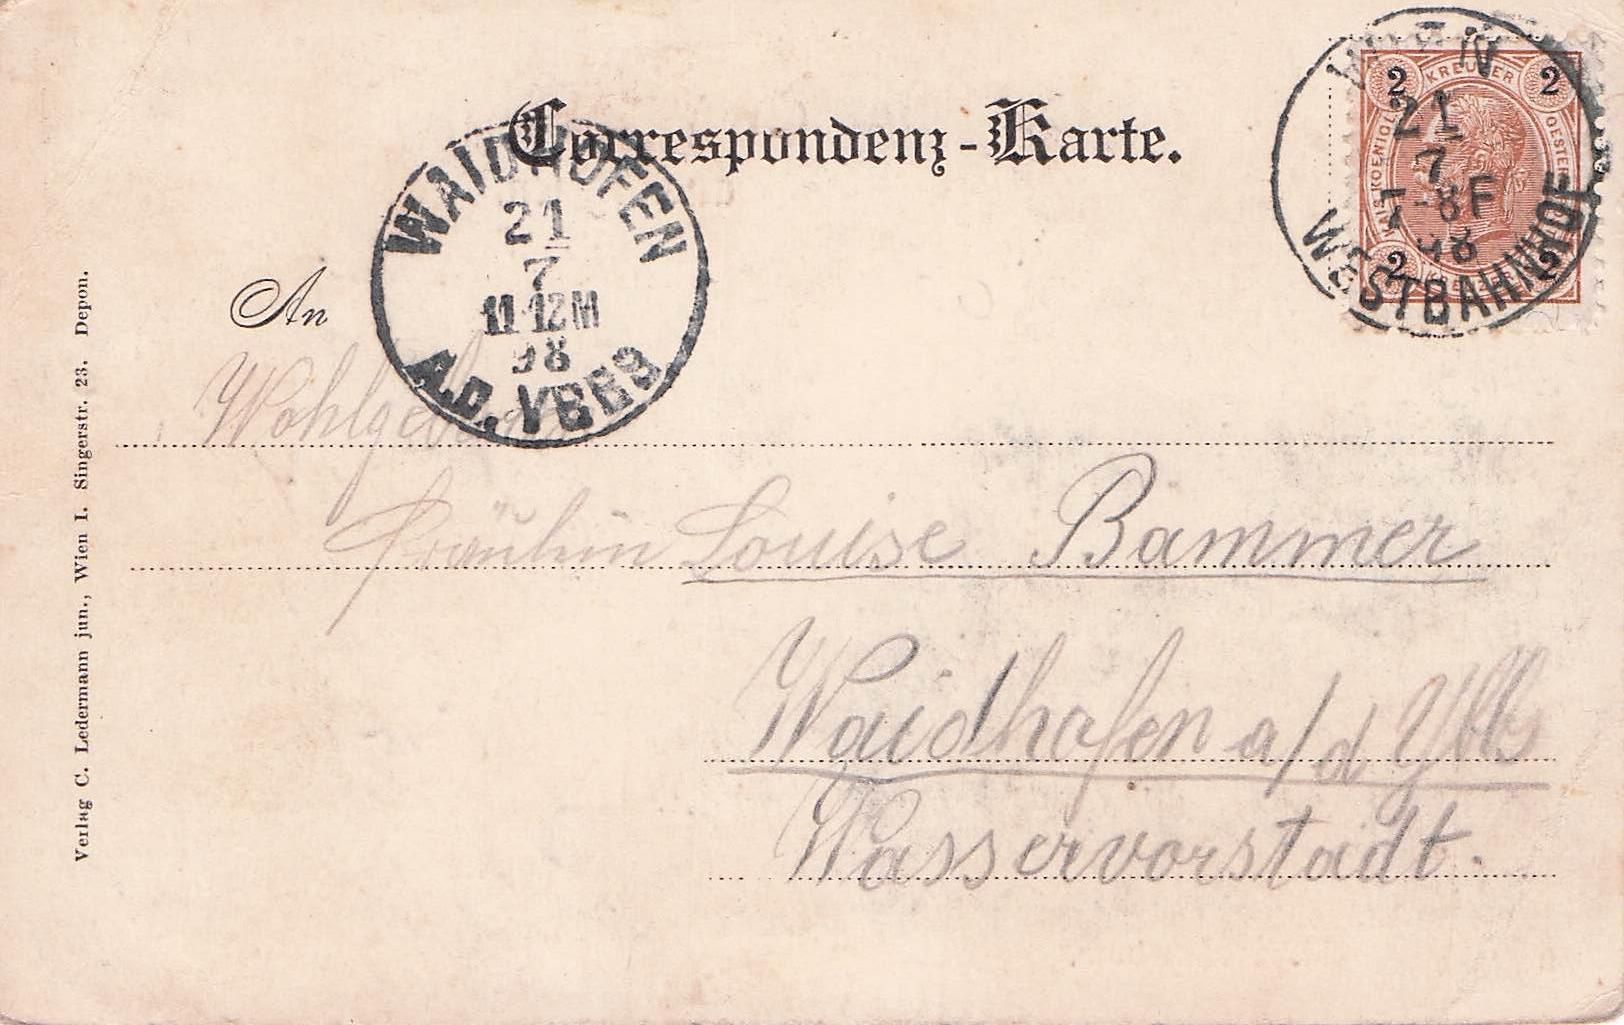 Correspondenz-Karte.
WIEN
21
7
7-8F
98
WESTBAHNHOF
2 KREUZER 2
2 2
WAIDHOFEN
21
7
11-12M
98
A.D. YBBS
An
Fräulein Louise Bammer
Waidhofen a/d Ybbs
Wasservorstadt.
Verlag C. Ledermann jun., Wien I. Singerstr. 23. Depon.